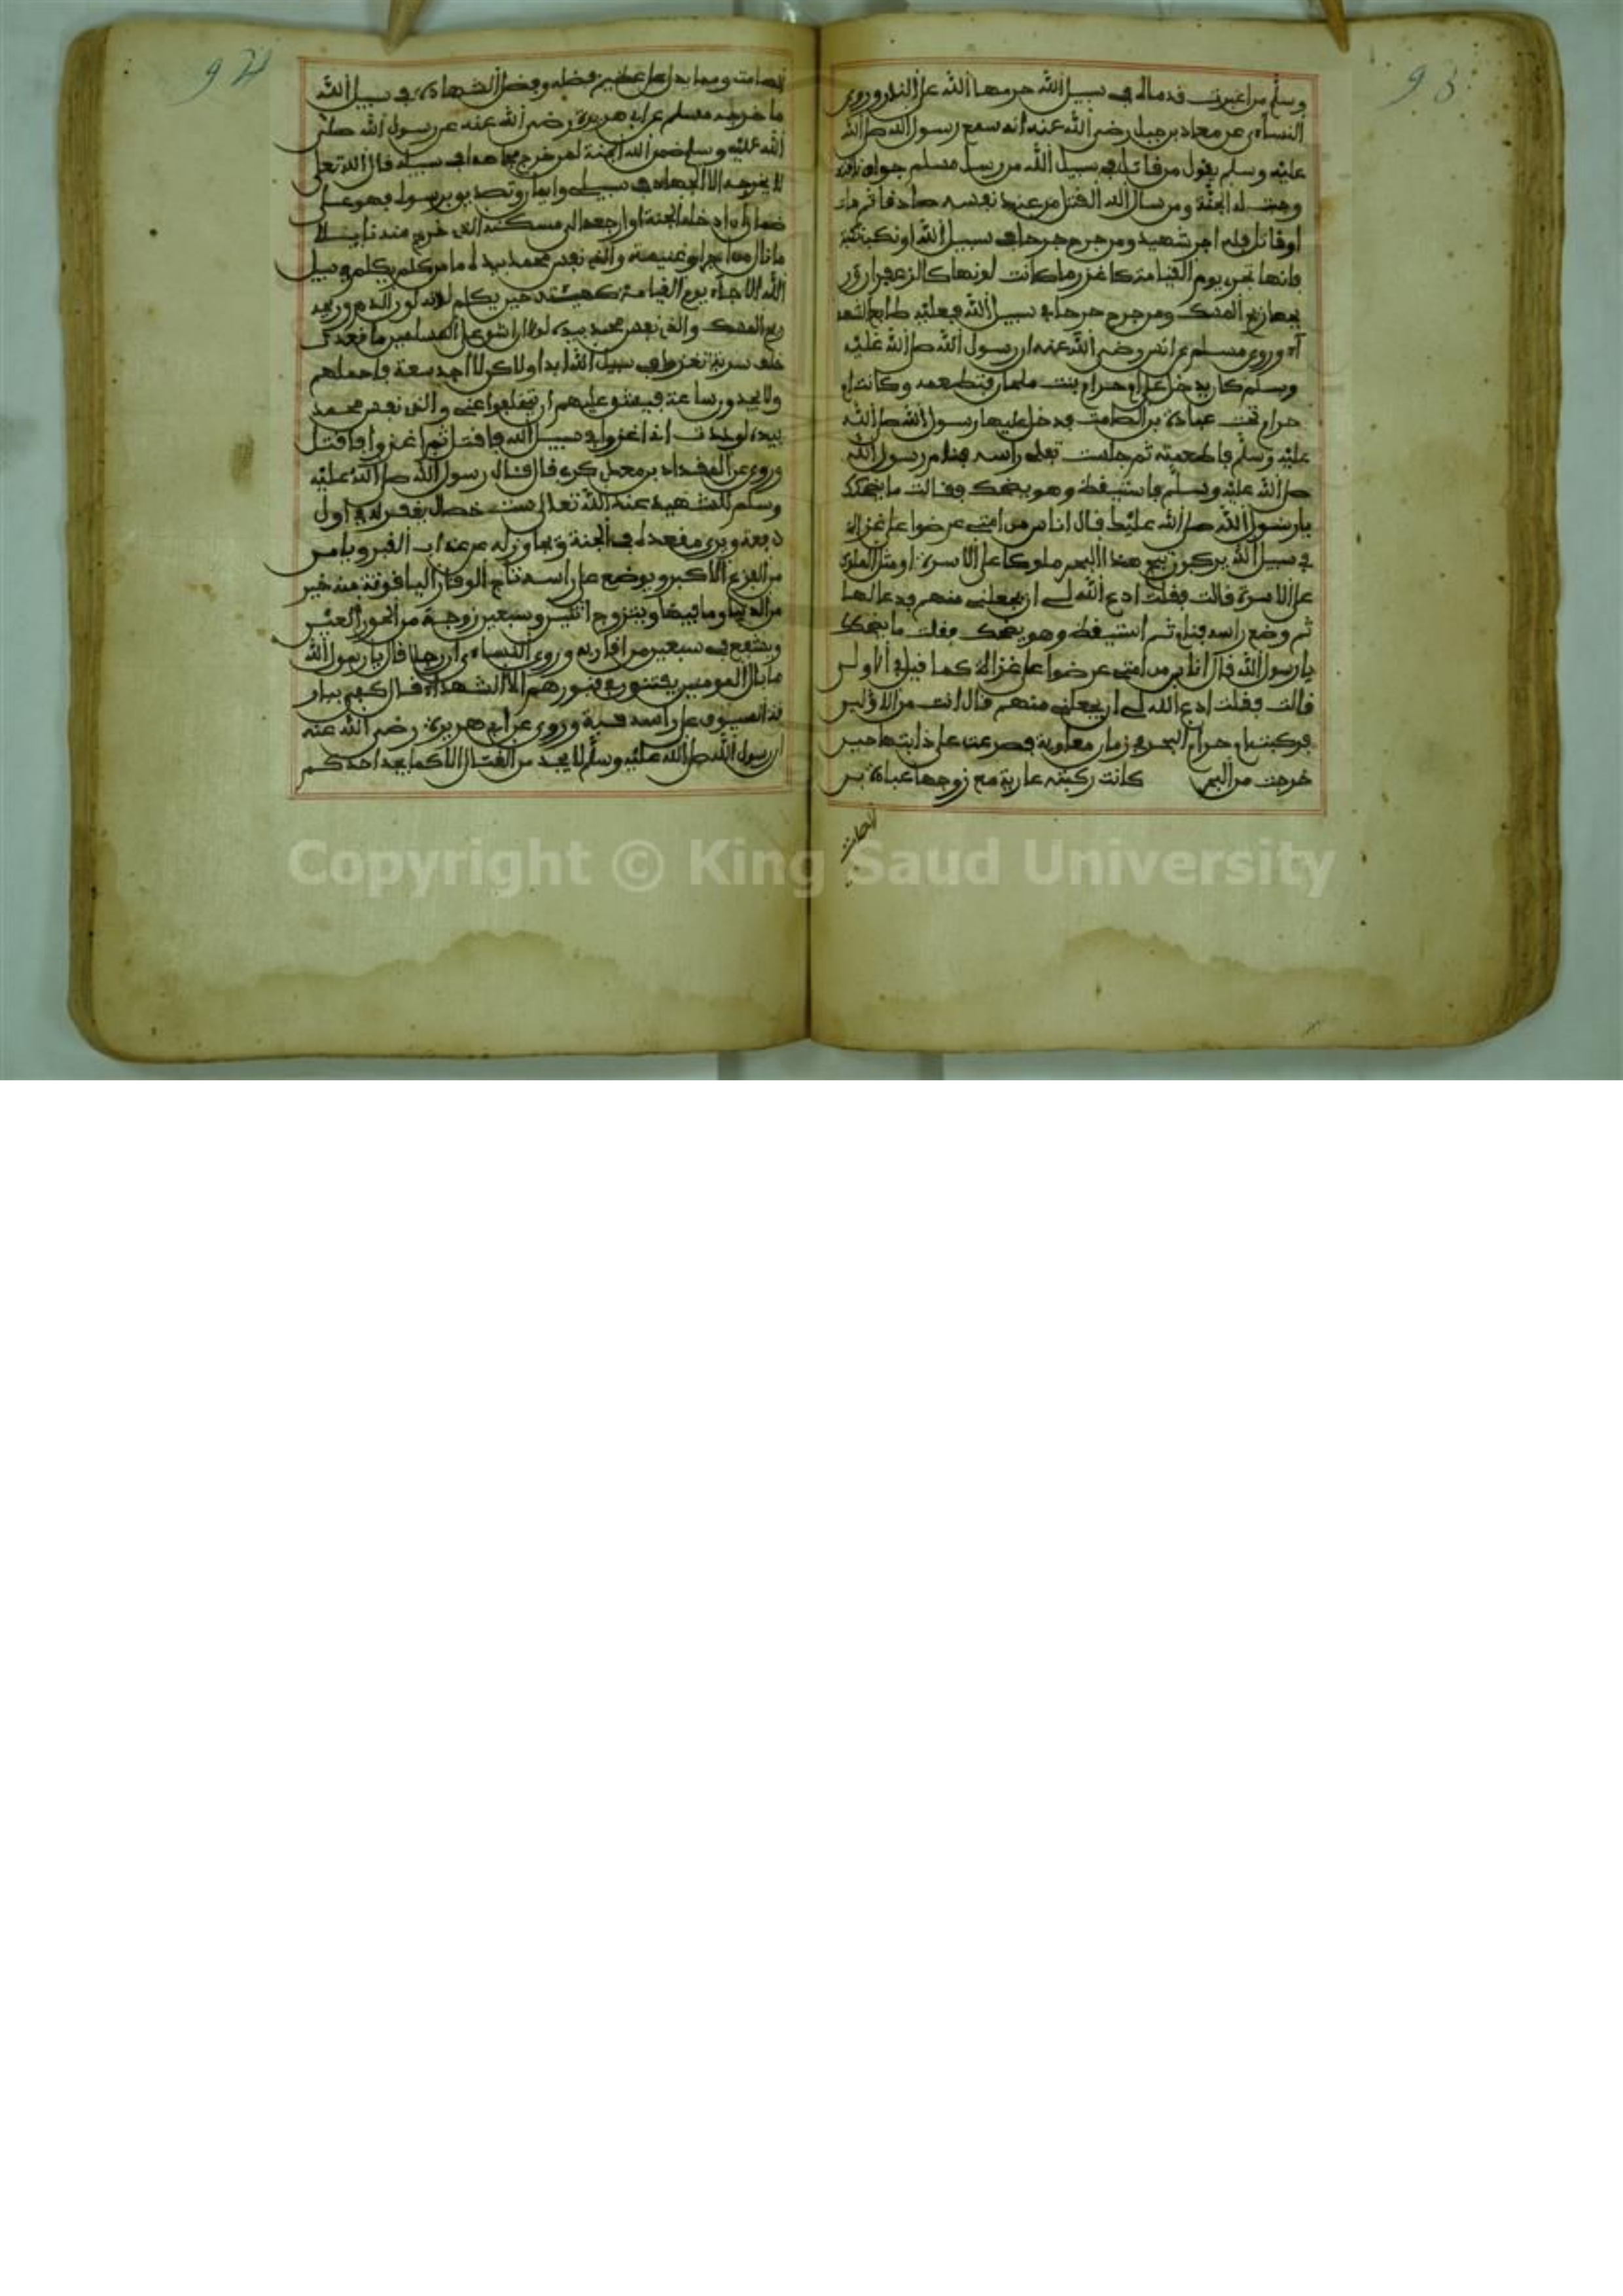 93
وسلم من اغبرت قدماه في سبيل الله حرمها الله على النار وروى
النساءي عن معاذ بن جبل رضي الله عنه انه سمع رسول الله صلى الله
عليه وسلم يقول من قاتل في سبيل الله من رجل مسلم فواق ناقة
وجبت له الجنة ومن سال الله القتل من عند نفسه صادقا ثم مات
او قاتل فله اجر شهيد ومن جرح جرحا في سبيل الله او نكب نكبة
فانها تجيء يوم القيامة كاغزر ما كانت لونها كالزعفران
ريح المسك ومن جرح جرحا في سبيل الله فعليه طابع الشهد
آء وروى مسلم عن انس رضي الله عنه ان رسول الله صلى الله عليه
وسلم كان يدخل على ام حرام بنت ملحان فتطعمه وكانت ام
حرام تحت عبادة بن الصامت فدخل عليها رسول الله صلى الله
عليه وسلم فاطعمته ثم جلست تفلي راسه فنام رسول الله
صلى الله عليه وسلم فاستيقظ وهو يضحك فقالت ما يضحكك
يا رسول الله صلى الله عليك قال اناس من امتي عرضوا علي غزاة
في سبيل الله يركبون ثبج هذا البحر ملوكا على الاسرة او مثل الملوك
على الاسرة قالت فقلت ادع الله لي ان يجعلني منهم فدعا لها
ثم وضع راسه فنام ثم استيقظ وهو يضحك فقلت ما يضحكك
يا رسول الله قال اناس من امتي عرضوا علي غزاة كما قيل في الاولى
قالت فقلت ادع الله لي ان يجعلني منهم قال انت من الاولين
فركبت ام حرام البحر في زمان معاوية فصرعت على دابتها حين
خرجت من البحر كانت ركبته غازية مع زوجها عبادة بن
الصامت
94
الصامت ومما يدل على عظيم فضله وفضل الشهادة في سبيل الله
ما خرجه مسلم عن ابي هريرة رضي الله عنه عن رسول الله صلى
الله عليه وسلم ضمن الله الجنة لمن خرج مجاهدا في سبيله قال الله تعلى
لا يخرجه الا الجهاد في سبيلي وايمان وتصديق برسولي فهو علي
ضامن ان ادخله الجنة او ارجعه الى مسكنه الذي خرج منه نايلا
ما نال من اجر او غنيمة والذي نفس محمد بيده ما من كلم يكلم في سبيل
الله الا جاء يوم القيامة كهيئته حين يكلم لونه لون الدم وريحه
ريح المسك والذي نفس محمد بيده لولا ان اشق على المسلمين ما قعدت
خلف سرية تغزو في سبيل الله ابدا ولاكن لا اجد سعة فاحملهم
ولا يجدون سعة فيشق عليهم ان يتخلفوا عني والذي نفس محمد
بيده لوددت اني اغزوا في سبيل الله فاقتل ثم اغزوا فاقتل
وروي عن المقداد بن معدي كرب قال قال رسول الله صلى الله عليه
وسلم للشهيد عند الله تعلى ست خصال يغفر له في اول
دفعة ويرى مقعده في الجنة ويجاوز له عن عذاب القبر ويامن
من الفزع الاكبر ويوضع على راسه تاج الوقار الياقوتة منه خير
من الدنيا وما فيها ويتزوج اثنتين وسبعين زوجة من الحور العين
ويشفع في سبعين من اقاربه وروى النساءي ان رجلا قال يا رسول الله
ما بال المومنين يفتنون في قبورهم الا الشهداء قال كفى ببار
قة السيوف على راسه فتنة وروى عن ابي هريرة رضي الله عنه
ان رسول الله صلى الله عليه وسلم لا يجد من القتل الا كما يجد احدكم
Copyright © King Saud University